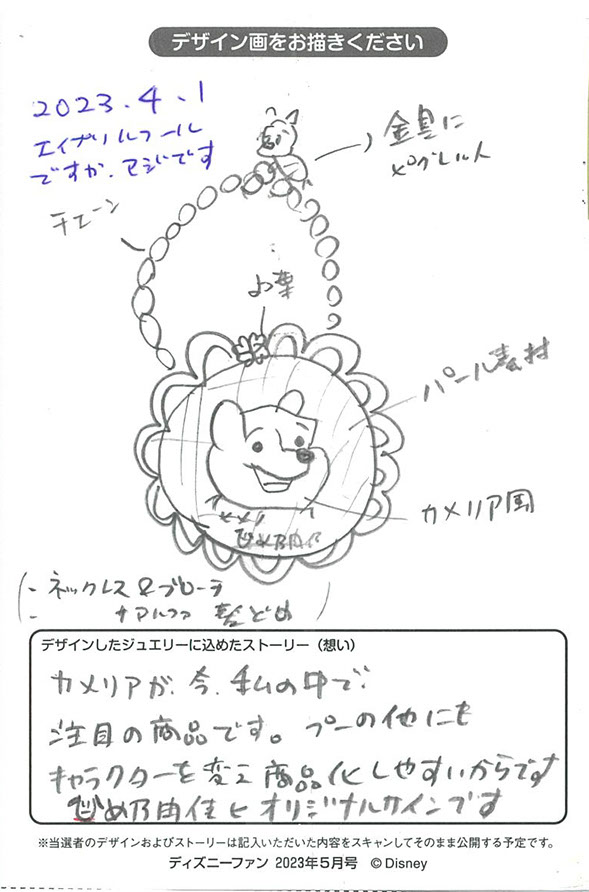 デザイン画をお描きください
2023.4.1
エイプリルフール
ですが、マジです
金具に
ピグレット
チェーン
お葉
パール素材
カメリア風
ネックレス&ブローチ
デザインしたジュエリーに込めたストーリー（想い）
カメリアが、今、私の中で
注目の商品です。プーの他にも
キャラクターを変え商品化しやすいからです
オリジナルサインです
※当選者のデザインおよびストーリーは記入いただいた内容をスキャンしてそのまま公開する予定です。
ディズニーファン 2023年5月号 ©Disney